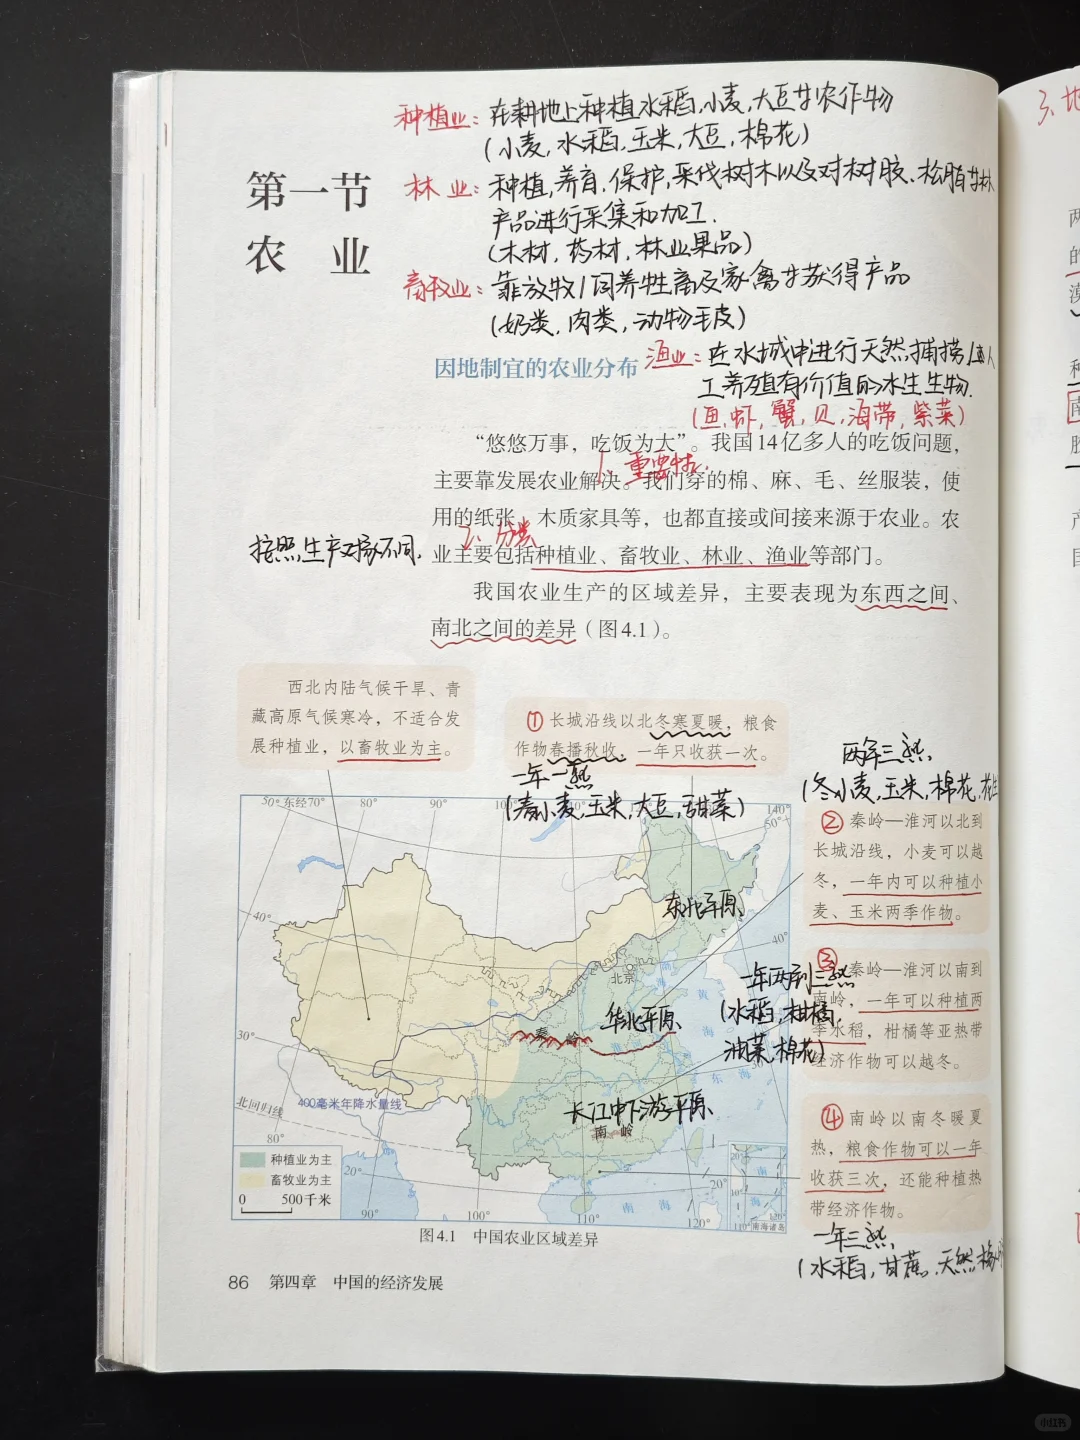 种植业：在耕地上种植水稻,小麦,大豆等农作物
(小麦,水稻,玉米,大豆,棉花)
第一节
农 业
林 业：种植,养育,保护,采伐树木以及对树胶、松脂等林
产品进行采集和加工.
(木材,药材,林业果品)
畜牧业：靠放牧/饲养牲畜及家禽等获得产品
(奶类,肉类,动物毛皮)
因地制宜的农业分布
渔业：在水域中进行天然捕捞/人
工养殖有价值的水生生物.
(鱼,虾,蟹,贝,海带,紫菜)
“悠悠万事，吃饭为大”。我国14亿多人的吃饭问题，
1、重要性.
主要靠发展农业解决。我们穿的棉、麻、毛、丝服装，使
用的纸张、木质家具等，也都直接或间接来源于农业。农
2、分类
按照生产对象不同.
业主要包括种植业、畜牧业、林业、渔业等部门。
我国农业生产的区域差异，主要表现为东西之间、
南北之间的差异（图4.1）。
西北内陆气候干旱、青
藏高原气候寒冷，不适合发
展种植业，以畜牧业为主。
① 长城沿线以北冬寒夏暖，粮食
作物春播秋收，一年只收获一次。
一年一熟
(春小麦,玉米,大豆,甜菜)
两年三熟,
(冬小麦,玉米,棉花,花生
② 秦岭—淮河以北到
长城沿线，小麦可以越
冬，一年内可以种植小
麦、玉米两季作物。
一年两到三熟
(水稻,柑橘,
油菜,棉花)
③ 秦岭—淮河以南到
南岭，一年可以种植两
季水稻，柑橘等亚热带
经济作物可以越冬。
④ 南岭以南冬暖夏
热，粮食作物可以一年
收获三次，还能种植热
带经济作物。
一年三熟,
(水稻,甘蔗,天然橡
50° 东经70° 80° 90° 100° 140°
50°
40°
40°
30°
30°
东北平原
北京
渤
海
黄
海
华北平原
秦 岭
淮 河
东 海
长江中下游平原
南 岭
400毫米年降水量线
北回归线
80°
20°
20°
90° 100° 110° 120°
南 海
种植业为主
畜牧业为主
0 500千米
20°
10°
南
海
110° 南海诸岛 120°
图4.1 中国农业区域差异
86 第四章 中国的经济发展
3、地
两
的
种
南
产
国
小红书